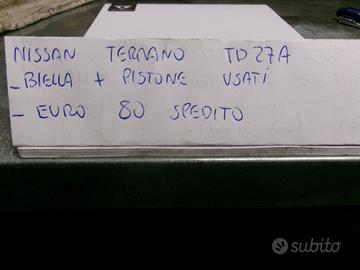 NISSAN TERRANO TD27A
- BIELLA + PISTONE USATI
- EURO 80 SPEDITO
subito